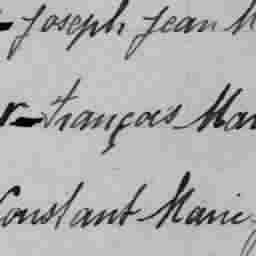 Joseph Jean M
r François Mar
Constant Marie